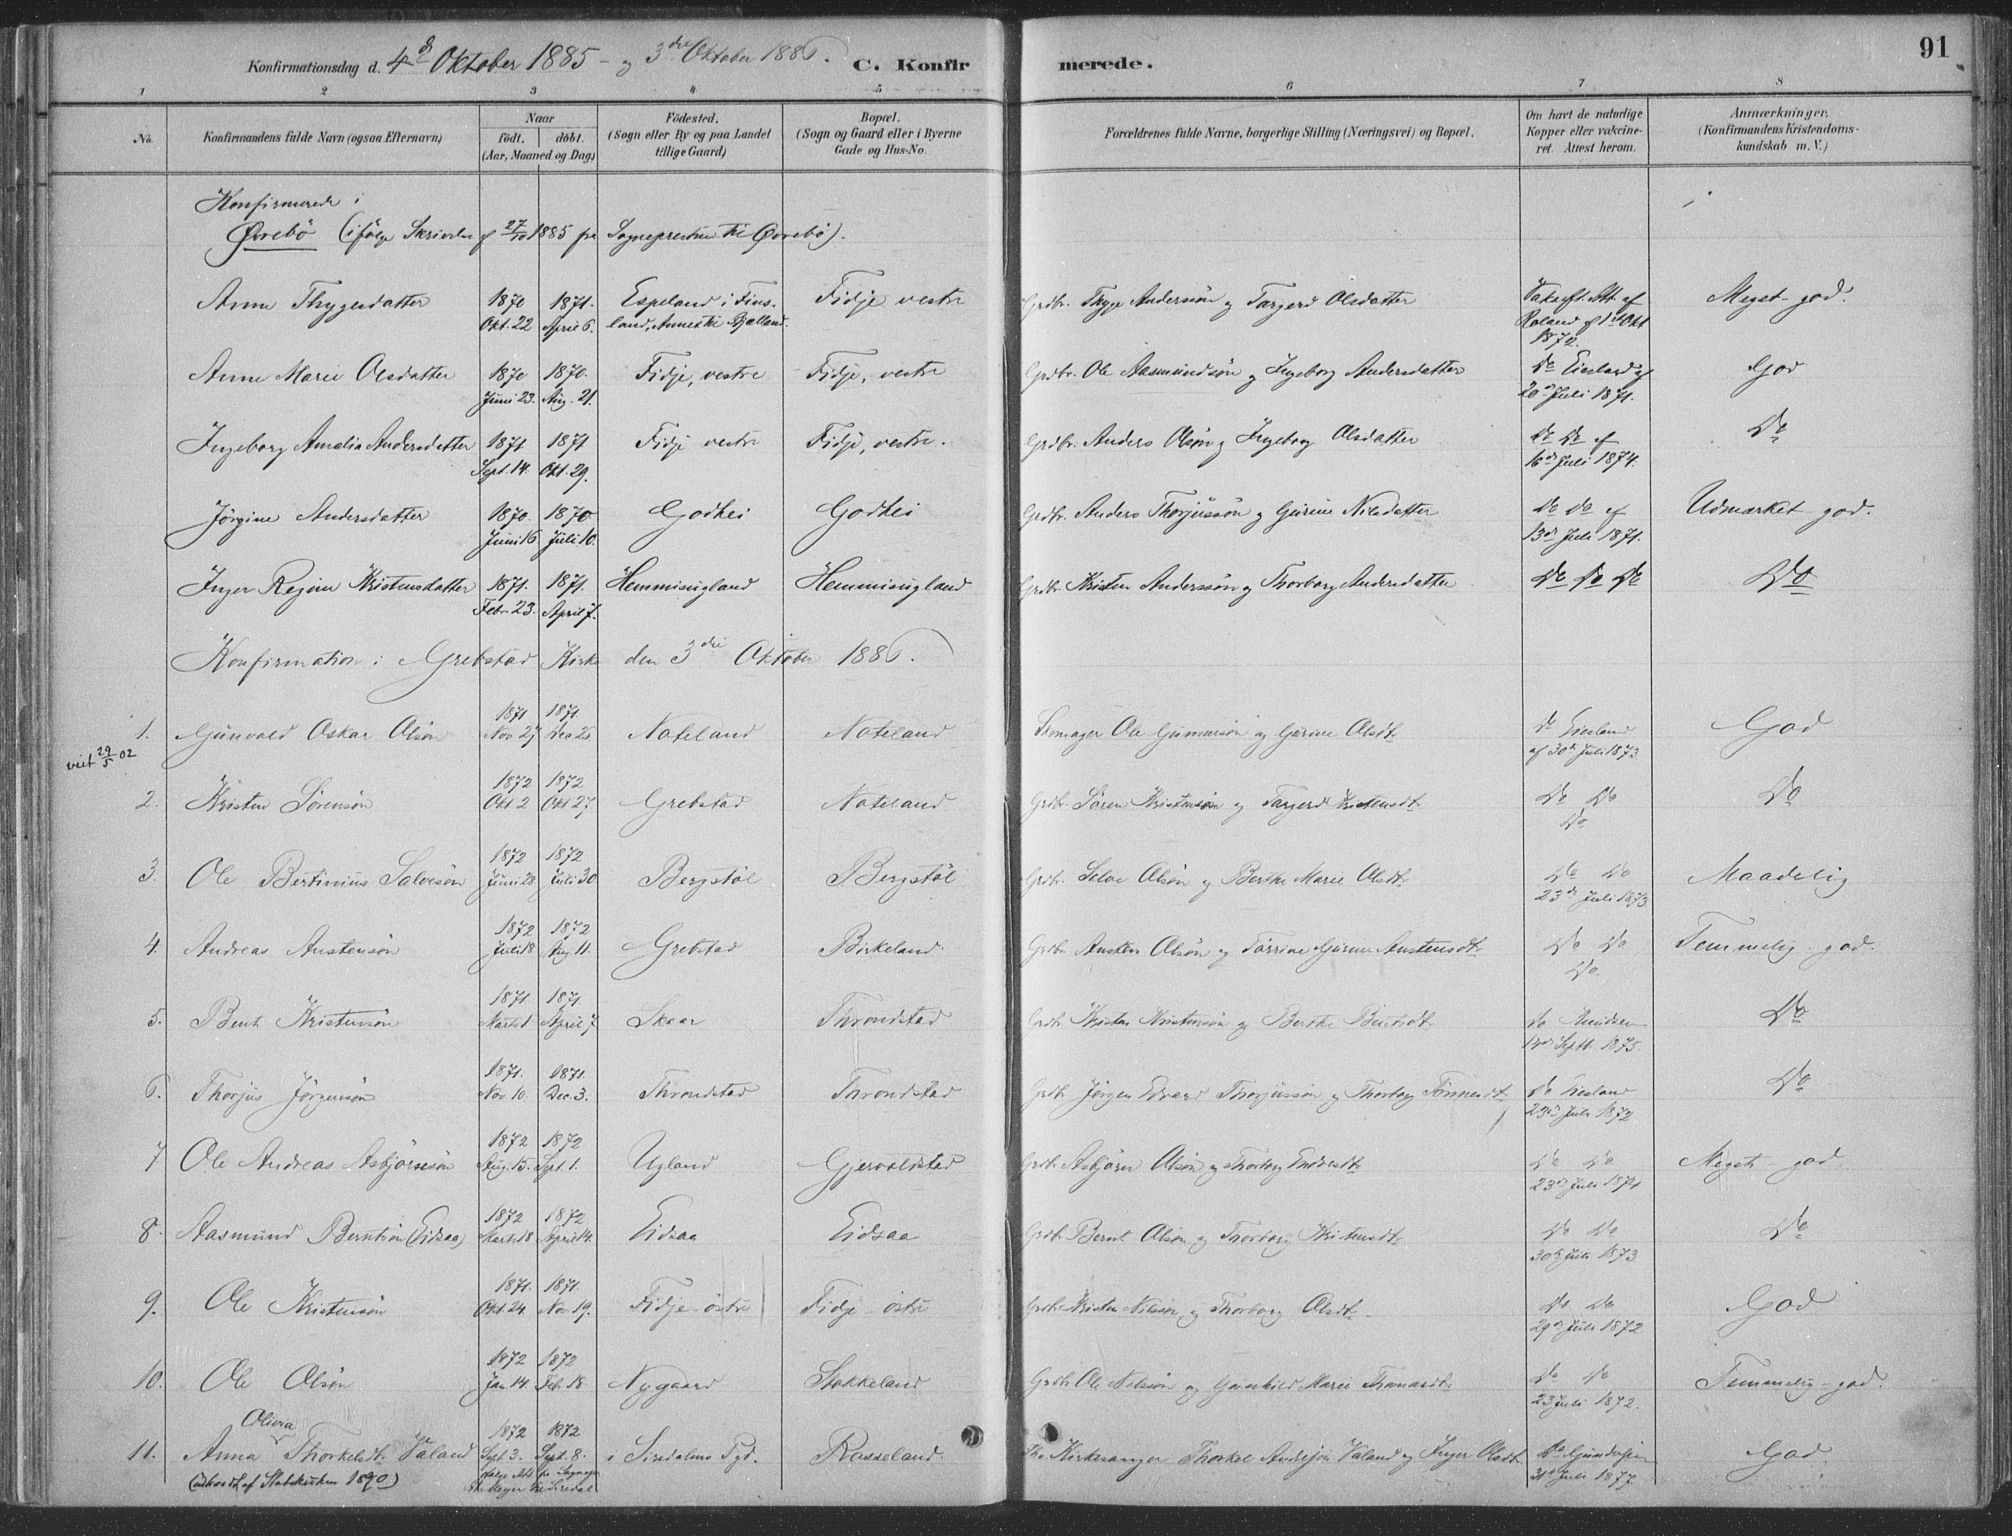 91
Konfirmationsdag d. 4de Oktober 1885 - og 3die Oktober 1886. C. Konfirmerede.
1 2 3 4 5 6 7 8
No. Konfirmandens fulde Navn (ogsaa Efternavn) Naar født. døbt. (Aar, Maaned og Dag) Fødested. (Sogn eller By og paa Landet tillige Gaard) Bopæl. (Sogn og Gaard eller i Byerne Gade og Hus-No. Forældrenes fulde Navne, borgerlige Stilling (Næringsvei) og Bopæl. Om havt de naturlige Kopper eller vakcineret. Attest herom. Anmærkninger. (Konfirmandens Kristendomskundskab m. V.)
Konfirmerede i
Øvrebö (ifölge Skrivelse af 27/10 1885 fra Sogneprésten til Øvrebö).
Anne Thygesdatter 1870 Okt. 22 1871. April 6. Espeland i Finsland, Annex til Bjelland. Fidje vestre Grdbr. Thyge Andersön og Targerd Olsdatter Vakcft. Att. af Roland af 1ste Okt 1872. Meget god.
Anne Marie Olsdatter 1870 Juni 23. 1870. Aug. 21. Fidje, vestre Fidje, vestre Grdbr. Ole Aasmundsön og Ingeborg Andersdatter Do Eieland af 20de Juli 1871. God
Ingeborg Amalia Andersdatter 1871 Sept. 14. 1871 Okt. 29. Fidje vestre Fidje, vestre. Grdbr. Anders Olsön og Ingeborg Olsdatter Do Do af 16de Juli 1874. Do
Jörgine Andersdatter 1870. Juni 16 1870 Juli 10. Godhei Godhei Grdbr. Anders Thorjussön og Gurine Nilsdatter Do Do af 13de Juli 1871. Udmærket god.
Inger Regine Kristensdatter 1871. Febr. 23. 1871. April 7. Hemmisugland Hemmisugland Grdbr. Kristen Anderssön og Thorborg Andersdatter Do Do Do Do
Konfirmation i Grebstad Kirke den 3die Oktober 1886.
1. Gunvald Oskar Olsön 1871 Nov 27 1871 Dec 2 Nateland Nateland Skomager Ole Gunnarsön og Gurine Olsdt. Do Eieland af 30te Juli 1873. God
viet 29/5 02
2. Kristen Sörensön 1872 Okt 2 1872 Okt 27. Grebstad Nateland Grdbr. Sören Kristensön og Targerd Kristensdt. Do Do Do Do
3. Ole Bertinius Salvesön 1872 Juni 28 1872 Juli 30 Bergstöl Bergstöl Grdbr. Selve Olsön og Berthe Marie Olsdt. Do Do 23de Juli 1873. Maadelig
4. Andreas Austensön 1872 Juli 18 1872 Aug. 11. Grebstad Birkeland. Grdbr. Austen Olsön og Torrine Gurine Austensdt. Do Do Do Temmelig god.
5. Bent Kristensön 1871. Marts 1 1871. April 7. Skaar Throndstad Grdbr. Kristen Kristensön og Berthe Bentsdt. Do Knudsen Septb. 1875. Do
6. Thorjus Jörgensön 1871. Nov 10. 1871. Dec. 3. Throndstad Throndstad Grdbr Jörgen Edvard Thorjussön og Thorborg Tönnesdt. Do Eieland 23de Juli 1872 Do
7 Ole Andreas Asbjörnsön 1872 Aug. 15. 1872 Sept. 1. Ugland Gjervoldstad Grdbr. Asbjörn Olsön og Thorborg Endresdt. Do Do 23de Juli 1874 Meget god.
8. Aasmund Berntsön (Eidsaa) 1872 Marts 18 1872 April 14. Eidsaa Eidsaa Grdbr. Bernt Olsön og Thorborg Kristensdt. Do Do 30te Juli 1873 Do
9. Ole Kristensön 1871. Okt. 24. 1871. Nov 19. Fidje östre Fidje östre Grdbr. Kristen Nilsön og Thorborg Olsdt. Do Do 29de Juli 1872. God
10. Ole Olsön 1872 Jan. 14. 1872 Feb. 18 Nygaard Stokkeland Grdbr. Ole Nilsön og Gunhild Marie Thomasdt. Do Do 23 Juli 1872. Temmelig god.
Olivia
11. Anna Thorkeldt. Valand 1872 Sept 3. 1872 Sept. 8. i Siredalens Pgd. Rosseland. Kirkesanger Thorkel Andersön Valand og Inger Olsdt. Do Gundersen 31te Juli 1877. God.
(udtraadt af Statskirken 1890)